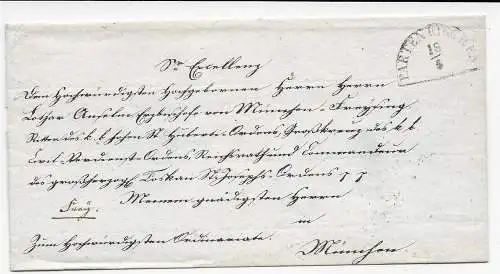 PARTENKIRCHEN
18
/4
Sr Excellenz
Den Hochwürdigsten Hochgebornen Herrn Herrn
Lothar Anselm Erzbischofe von München-Freysing
Ritter des k. b. hohen St. Huberti-Ordens, Großkreuz des k. b.
Civil-Verdienst-Ordens, Reichsrath und Commandeur
des großherzogl. Toskan. St. Josephs-Ordens
Meinem gnädigsten Herrn
Frey.
in
Zum Hochwürdigsten Ordinariate.
München.